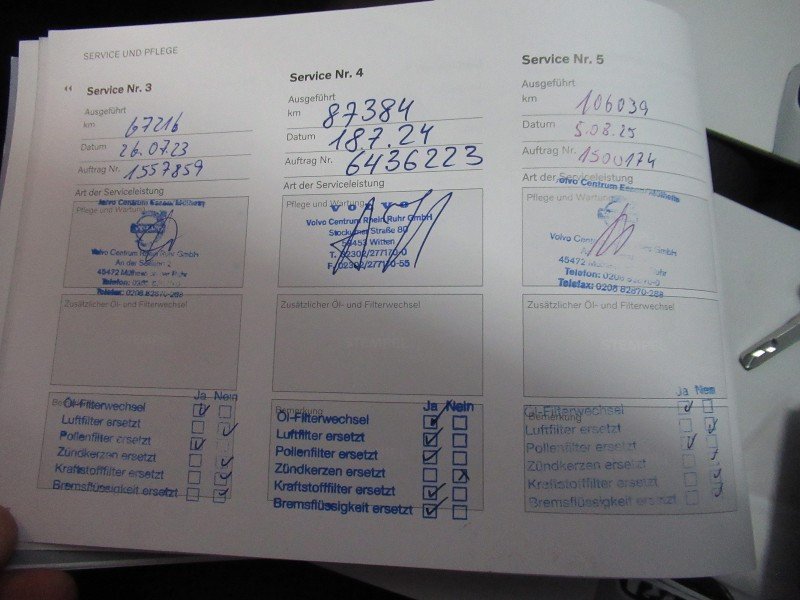 SERVICE UND PFLEGE
Service Nr. 3
Ausgeführt
km 67216
Datum 26.07.23
Auftrag Nr. 1557859
Art der Serviceleistung
Pflege und Wartung
Volvo Centrum Essen/Mülheim
Volvo Centrum Rhein Ruhr GmbH
45472 Mülheim an der Ruhr
Telefon: 0208 82870-0
Telefax: 0208 82870-288
Zusätzlicher Öl- und Filterwechsel
Ja Nein
Öl-Filterwechsel
Luftfilter ersetzt
Pollenfilter ersetzt
Zündkerzen ersetzt
Kraftstofffilter ersetzt
Bremsflüssigkeit ersetzt
Service Nr. 4
Ausgeführt
km 87384
Datum 18.7.24
Auftrag Nr. 6436223
Art der Serviceleistung
Pflege und Wartung
VOLVO
Volvo Centrum Rhein Ruhr GmbH
Stockumer Straße 80
58453 Witten
T. 02302/277170-0
F. 02302/277170-55
Zusätzlicher Öl- und Filterwechsel
STEMPEL
Bemerkung
Ja Nein
Öl-Filterwechsel
Luftfilter ersetzt
Pollenfilter ersetzt
Zündkerzen ersetzt
Kraftstofffilter ersetzt
Bremsflüssigkeit ersetzt
Service Nr. 5
Ausgeführt
km 106039
Datum 5.08.25
Auftrag Nr. 1500174
Art der Serviceleistung
Volvo Centrum Essen/Mülheim
Pflege und Wartung
Volvo Centrum Rhein Ruhr GmbH
45472 Mülheim an der Ruhr
Telefon: 0208 82870-0
Telefax: 0208 82870-288
Zusätzlicher Öl- und Filterwechsel
STEMPEL
Bemerkung
Ja Nein
Öl-Filterwechsel
Luftfilter ersetzt
Pollenfilter ersetzt
Zündkerzen ersetzt
Kraftstofffilter ersetzt
Bremsflüssigkeit ersetzt